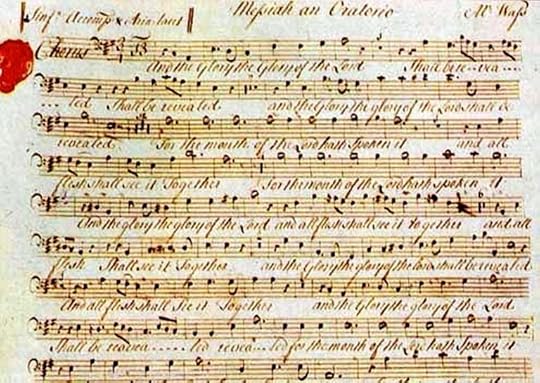 Sinf.ª Accomp & Aria tacet Messiah an Oratorio Mr Wass
Chorus
And the Glory the Glory of the Lord Shall be re--vea---
--led Shall be revealed and the Glory the glory of the Lord shall be
revealed For the mouth of the Lord hath Spoken it and all
flesh shall see it Together For the mouth of the Lord hath spoken it
And the Glory the glory of the Lord and all flesh shall see it together and all
flesh Shall see it Together and the Glory the glory of the Lord shall be revealed
And all flesh shall see it Together and the Glory the glory of the Lord
Shall be revea-----led revea---led for the mouth of the Lord hath Spoken it